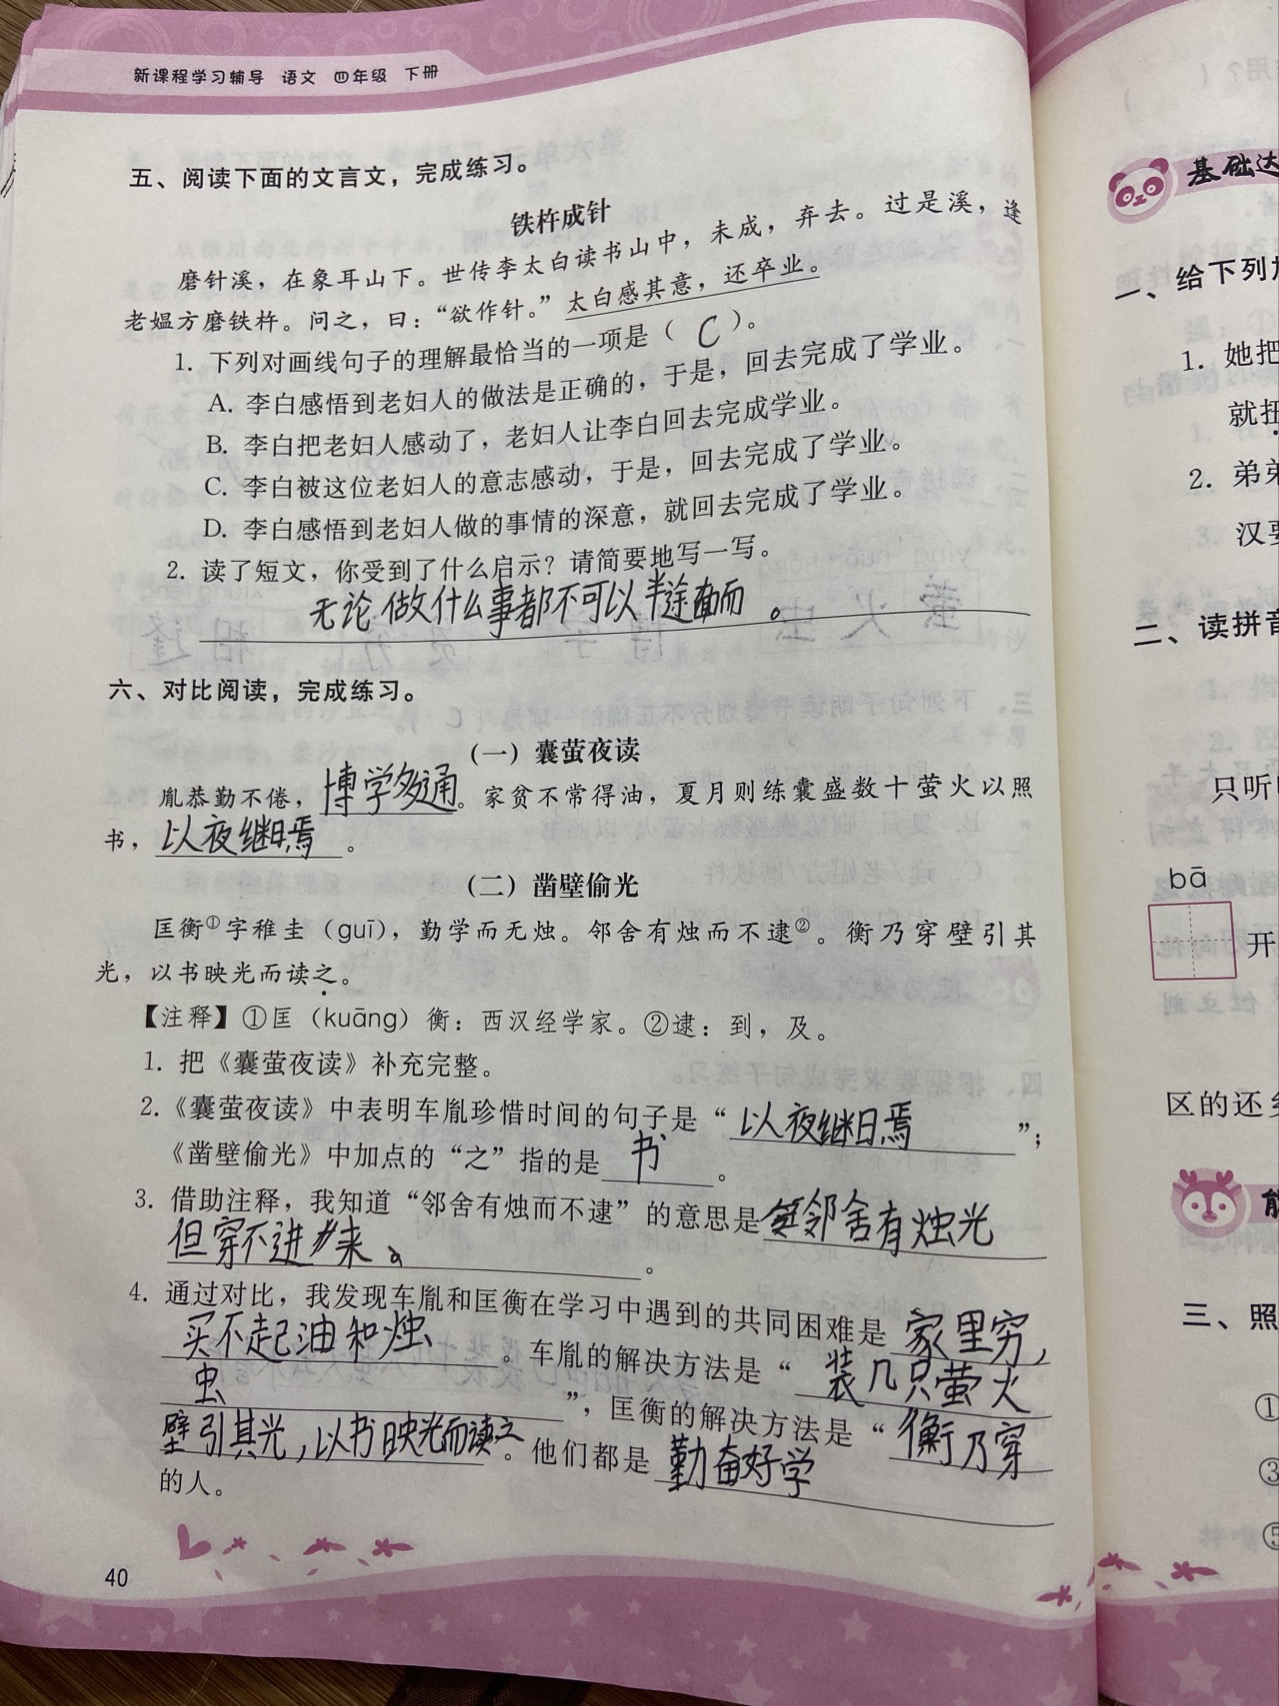 新课程学习辅导 语文 四年级 下册
五、阅读下面的文言文，完成练习。
铁杵成针
磨针溪，在象耳山下。世传李太白读书山中，未成，弃去。过是溪，逢
老媪方磨铁杵。问之，曰：“欲作针。”太白感其意，还卒业。
1. 下列对画线句子的理解最恰当的一项是（ C ）。
A. 李白感悟到老妇人的做法是正确的，于是，回去完成了学业。
B. 李白把老妇人感动了，老妇人让李白回去完成学业。
C. 李白被这位老妇人的意志感动，于是，回去完成了学业。
D. 李白感悟到老妇人做的事情的深意，就回去完成了学业。
2. 读了短文，你受到了什么启示？请简要地写一写。
无论做什么事都不可以半途而。
六、对比阅读，完成练习。
（一）囊萤夜读
胤恭勤不倦，博学多通。家贫不常得油，夏月则练囊盛数十萤火以照
书，以夜继日焉。
（二）凿壁偷光
匡衡①字稚圭（guī），勤学而无烛。邻舍有烛而不逮②。衡乃穿壁引其
光，以书映光而读之。
【注释】①匡（kuāng）衡：西汉经学家。②逮：到，及。
1. 把《囊萤夜读》补充完整。
2.《囊萤夜读》中表明车胤珍惜时间的句子是“以夜继日焉”；
《凿壁偷光》中加点的“之”指的是书。
3. 借助注释，我知道“邻舍有烛而不逮”的意思是邻舍有烛光
但穿不进来。。
4. 通过对比，我发现车胤和匡衡在学习中遇到的共同困难是家里穷，
买不起油和烛。车胤的解决方法是“装几只萤火
虫”，匡衡的解决方法是“衡乃穿
壁引其光，以书映光而读之。他们都是勤奋好学
的人。
40
基础达
一、给下列加
1. 她把
就扭
2. 弟弟
汉要
二、读拼音
只听
bā
开
区的还乡
能
三、照
①
③
⑤